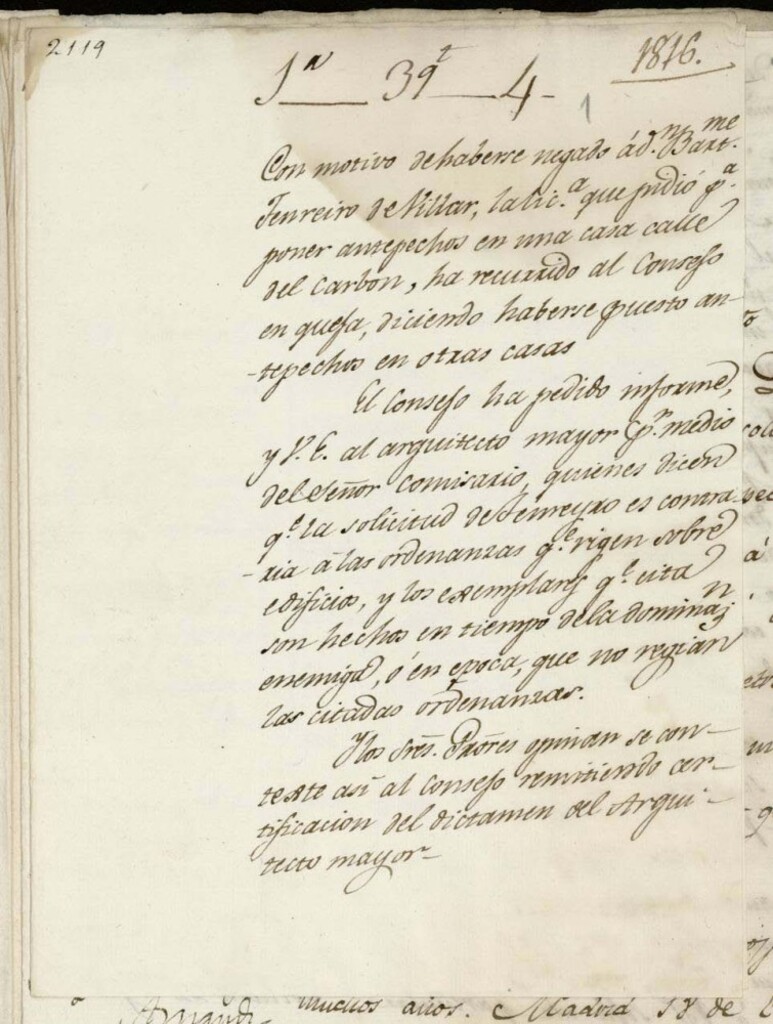 2119
1816.
1ª 39ᵗ 4
1
Con motivo de haberse negado á dⁿ. Bartᵐᵉ.
Fenreiro de Villar, la lic.ª que pidió pª.
poner antepechos en una casa calle
del Carbon, ha recurrido al Consejo
en queja, diciendo haberse puesto an-
-tepechos en otras casas
El Consejo ha pedido informe,
y V.E. al arquitecto mayor pʳ. medio
del Señor Comisario, quienes dicen
qᵉ. la solicitud de Fenreyro es contra-
-ria á las ordenanzas qᵉ. rigen sobre
edificios, y los exemplares qᵉ. cita
son hechos en tiempo de la dominazⁿ
enemiga, ó en epoca, que no regian
las citadas ordenanzas.
Y los Sres. Prores opinan se con-
texte asi al Consejo remitiendo cer-
tificacion del dictamen del Arqui-
tecto mayor-
muchos años. Madrid 18 de